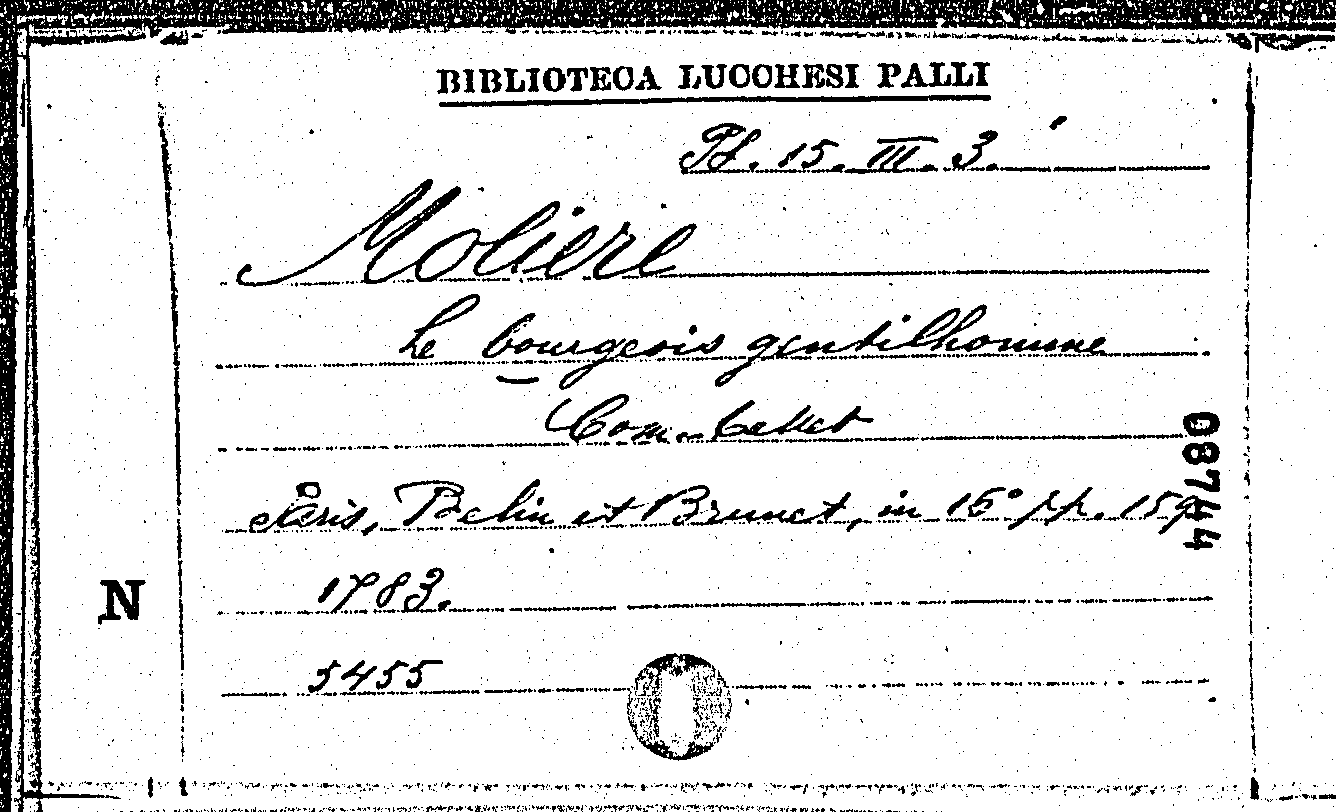 BIBLIOTECA LUCCHESI PALLI
Pl. 15. III. 3.
Moliere
Le bourgeois gentilhomme
Com. ballet
Paris, Belin et Brunet, in 16° pp. 159
1783.
N
5455
087744